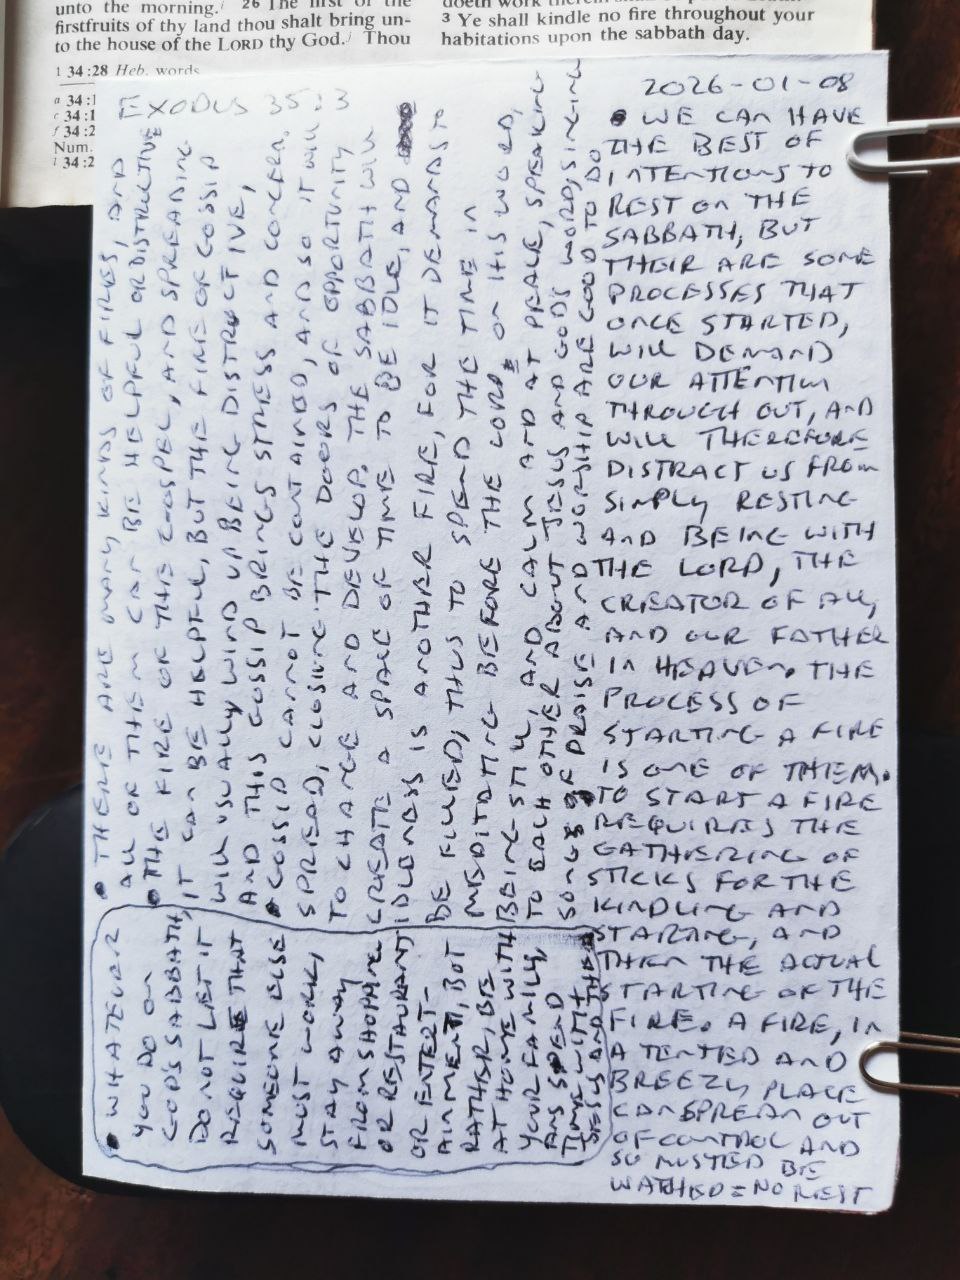 unto the morning. 26 The first of the
firstfruits of thy land thou shalt bring un-
to the house of the LORD thy God. Thou
1 34:28 Heb. words
a 34:1
c 34:1
f 34:2
Num.
i 34:2
3 Ye shall kindle no fire throughout your
habitations upon the sabbath day.
EXODUS 35:3
2026-01-08
• WE CAN HAVE
THE BEST OF
INTENTIONS TO
REST ON THE
SABBATH, BUT
THEIR ARE SOME
PROCESSES THAT
ONCE STARTED,
WILL DEMAND
OUR ATTENTION
THROUGH OUT, AND
WILL THEREFORE
DISTRACT US FROM
SIMPLY RESTING
AND BEING WITH
THE LORD, THE
CREATOR OF ALL,
AND OUR FATHER
IN HEAVEN. THE
PROCESS OF
STARTING A FIRE
IS ONE OF THEM.
TO START A FIRE
REQUIRES THE
GATHERING OF
STICKS FOR THE
KINDLING AND
STARTING, AND
THEN THE ACTUAL
STARTING OF THE
FIRE. A FIRE, IN
A TENTED AND
BREEZY PLACE
CAN SPREAD OUT
OF CONTROL AND
SO MUSTED BE
WATHED = NO REST
• THERE ARE MANY KINDS OF FIRES, AND
ALL OF THEM CAN BE HELPFUL OR DISTRUCTIVE
• THE FIRE OF THE GOSPEL, AND SPREADING
IT CAN BE HELPFUL, BUT THE FIRE OF GOSSIP
WILL USUALLY WIND UP BEING DISTRUCTIVE,
AND THIS GOSSIP BRINGS STRESS AND CONCERN.
• GOSSIP CANNOT BE CONTAINED, AND SO IT WILL
SPREAD, CLOSING THE DOORS OF OPPORTUNITY
TO CHANGE AND DEVELOP. THE SABBATH WILL
CREATE A SPACE OF TIME TO BE IDLE, AND
IDLENESS IS ANOTHER FIRE, FOR IT DEMANDS TO
BE FILLED; THUS TO SPEND THE TIME IN
MEDITATING BEFORE THE LORD & ON HIS WORD,
BEING STILL, AND CALM AND AT PEACE, SPEAKING
TO EACH OTHER ABOUT JESUS AND GOD'S WORD, SINGING
SONGS OF PRAISE AND WORSHIP ARE GOOD TO DO
• WHATEVER
YOU DO ON
GOD'S SABBATH,
DO NOT LET IT
REQUIRE THAT
SOMEONE ELSE
MUST WORK,
STAY AWAY
FROM SHOPPING
OR RESTAURANT
OR ENTERT-
AINMENT, BUT
RATHER, BE
AT HOME WITH
YOUR FAMILY,
AND SPEND
TIME WITH
JESUS AND THEM